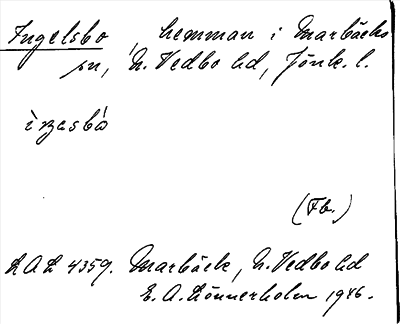 Ingelsbo, hemman i Marbäcks
sn, N. Vedbo hd, Jönk. l.
(Fb.)
LAL 4359. Marbäck, N. Vedbo hd
E. A. Lönnerholm 1946.